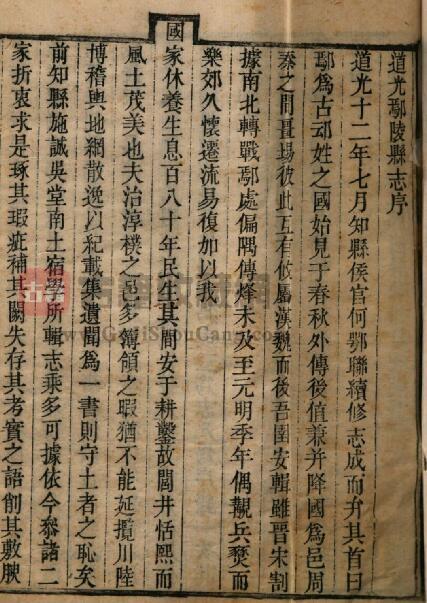 道光鄢陵縣志序
道光十二年七月知縣侯官何鄂聯續修志成而弁其首曰
鄢爲古妘姓之國始見于春秋外傳後值兼并降國爲邑周
秦之間畺埸彼此互有攸屬漢魏而後吾圉安輯雖晉宋割
據南北轉戰鄢處偏隅傳烽未及至元明季年偶覯兵燹而
樂郊久懷遷流易復加以我
國
家休養生息百八十年民生其間安于耕鑿故閭井恬熙而
風土茂美也夫治淳樸之邑多簿領之暇猶不能延攬川陸
博稽輿地網散逸以紀載集遺聞爲一書則守土者之恥矣
前知縣施誠吳堂南土宿學所輯志乘多可據依今叅諸二
家折衷求是琢其瑕疵補其闕失存其考實之語削其敷腴